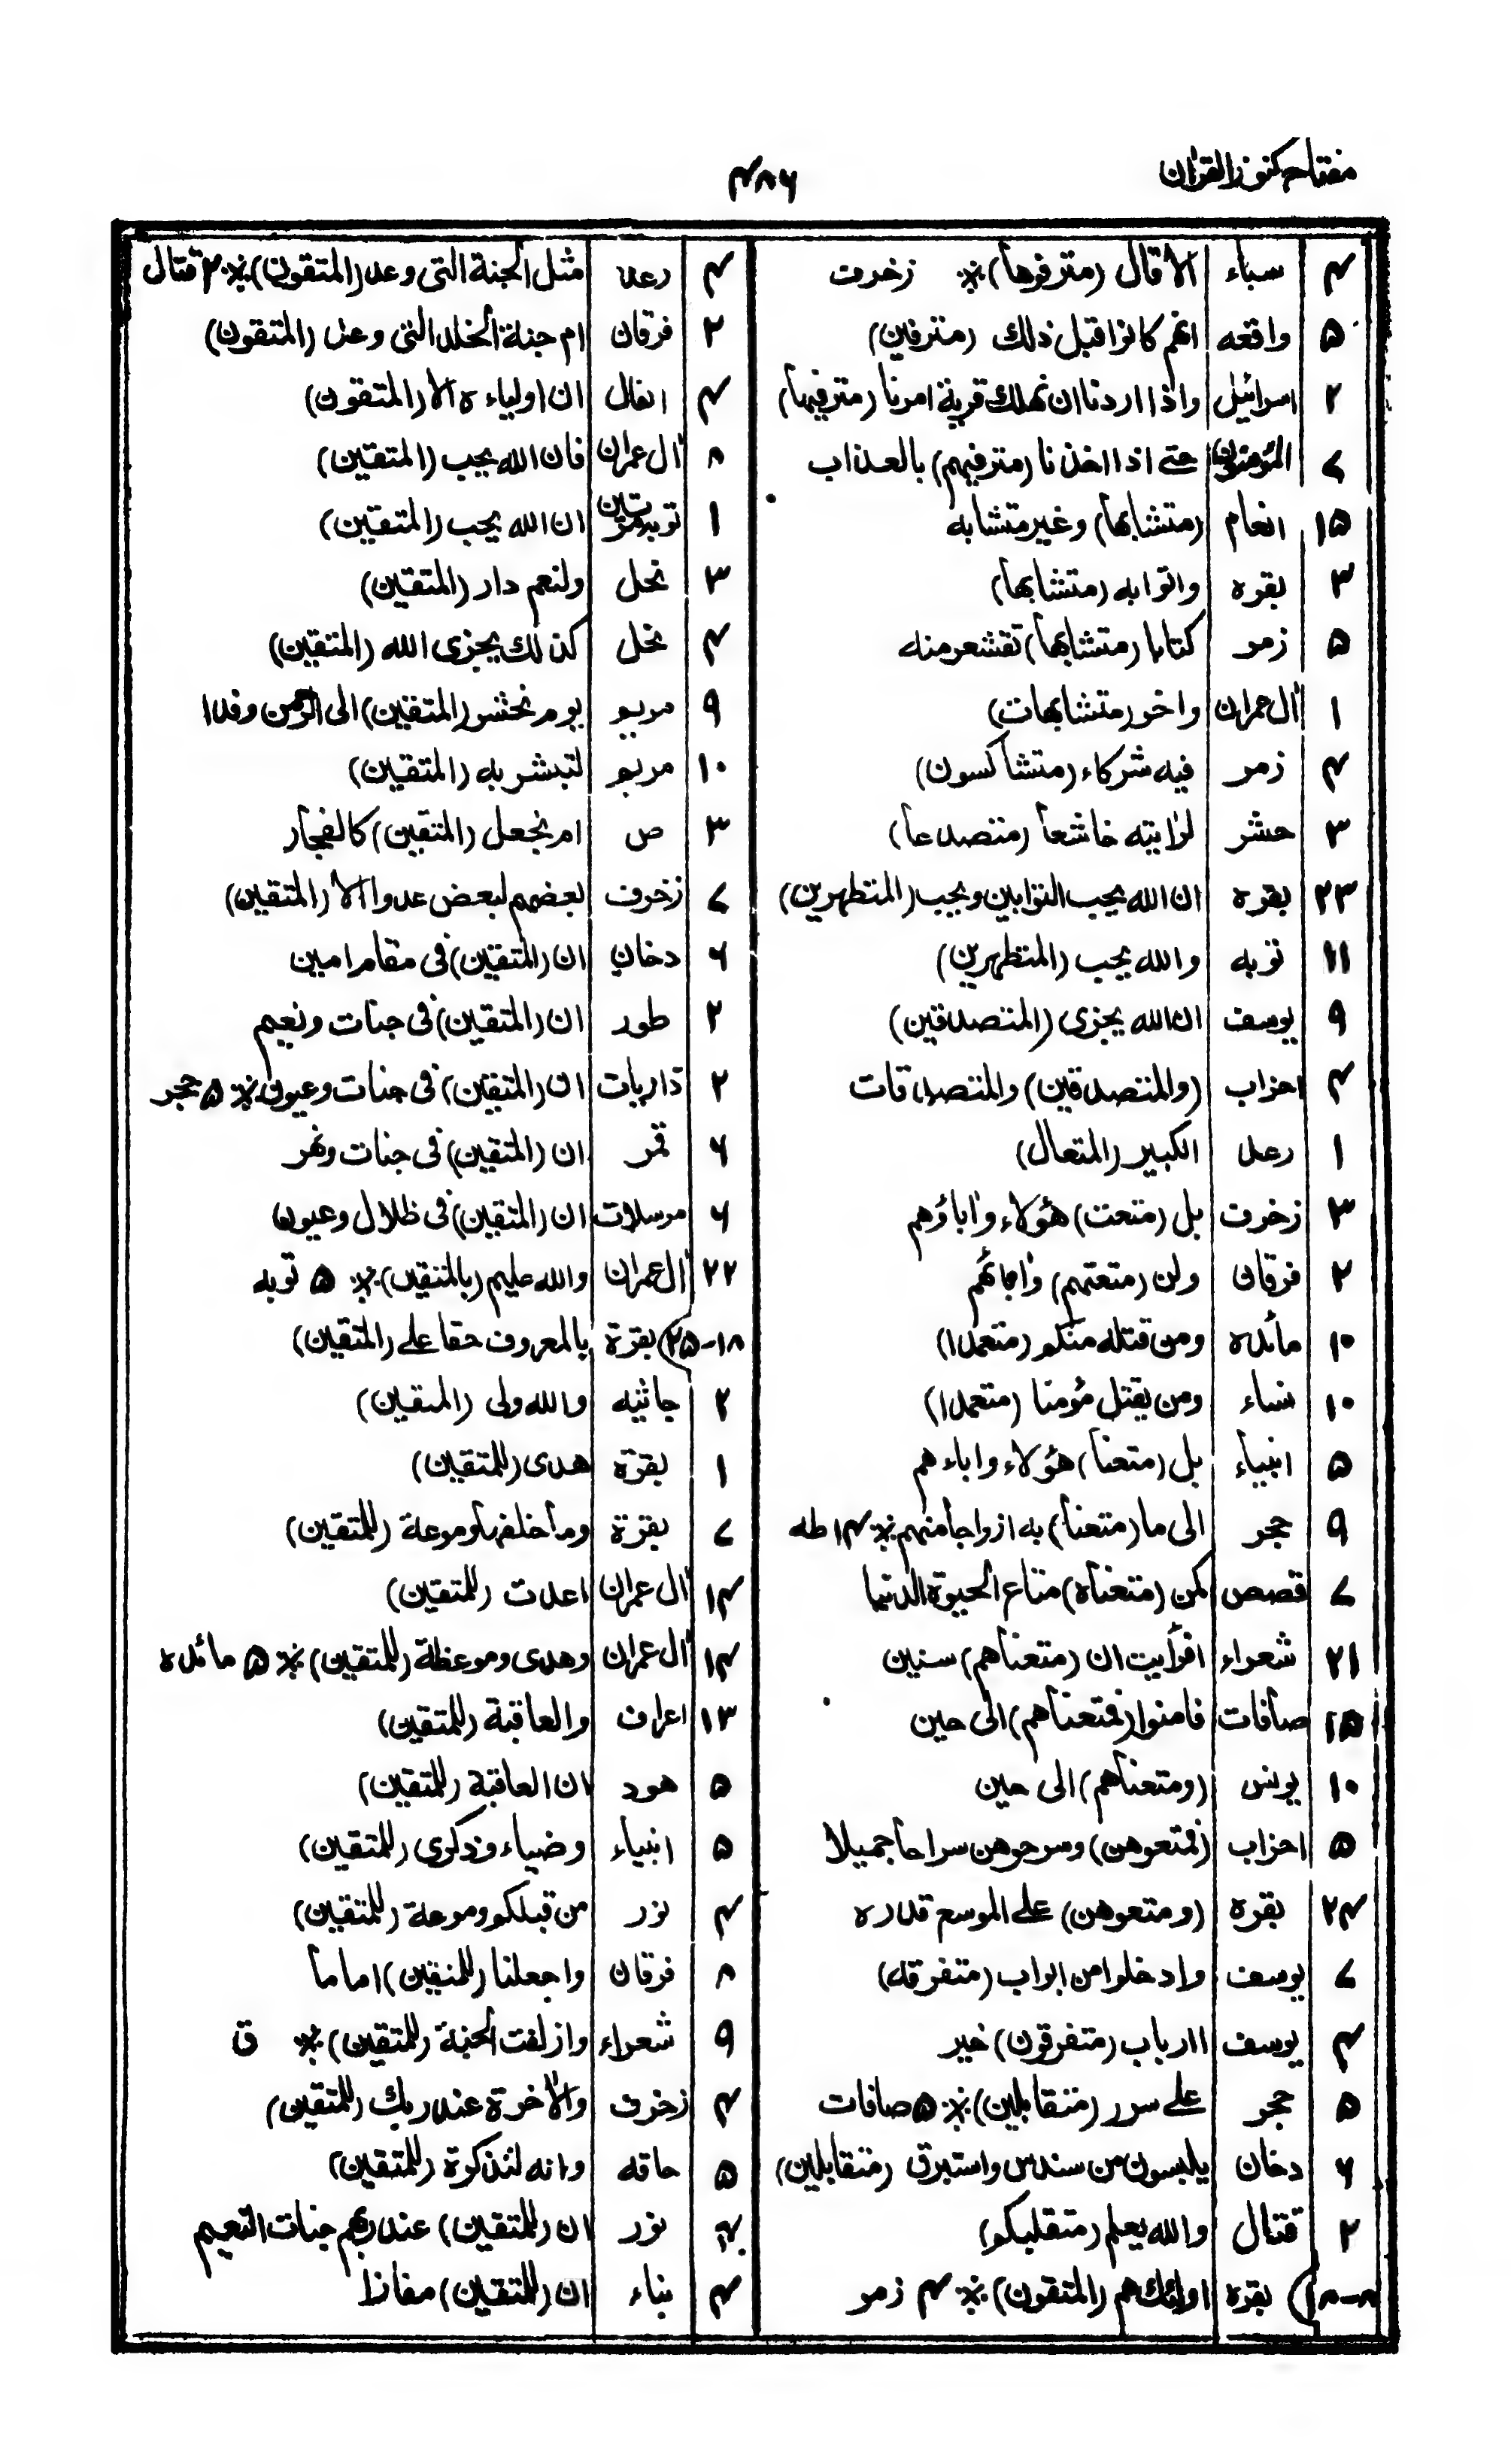 مفتاح كنوز القران
۴۸۶
۴ سباء الا قال (مترفوها) ※ زخرف
۵ واقعه انهم كانوا قبل ذلك (مترفين)
۲ اسرائيل واذا اردنا ان نهلك قرية امرنا (مترفيها)
۷ المؤمنون حتى اذا اخذنا (مترفيهم) بالعذاب
۱۵ انعام (متشابها) وغير متشابه
۳ بقره واتوا به (متشابها)
۵ زمر كتابا (متشابها) تقشعر منه
۱ أل عمران واخر (متشابهات)
۴ زمر فيه شركاء (متشاكسون)
۳ حشر لرايته خاشعا (متصدعا)
۲۳ بقره ان الله يحب التوابين ويحب (المتطهرين)
۱۱ توبه والله يحب (المتطهرين)
۹ يوسف ان الله يجزى (المتصدقين)
۴ احزاب (والمتصدقين) والمتصدقات
۱ رعد الكبير (المتعال)
۳ زخرف بل (متعت) هؤلاء واباؤهم
۲ فرقان ولن (متعتهم) واباءهم
۱۰ مائده ومن قتله منكم (متعمدا)
۱۰ نساء ومن يقتل مؤمنا (متعمدا)
۵ انبياء بل (متعنا) هؤلاء واباءهم
۹ حجر الى ما (متعنا) به ازواجا منهم ※ ۱۴ طه
۷ قصص كمن (متعناه) متاع الحيوة الدنيا
۲۱ شعراء افرأيت ان (متعناهم) سنين
۱۵ صافات فامنوا (فمتعناهم) الى حين
۱۰ يونس (ومتعناهم) الى حين
۵ احزاب (فمتعوهن) وسرحوهن سراحا جميلا
۲۴ بقره (ومتعوهن) على الموسع قدره
۷ يوسف وادخلوا من ابواب (متفرقه)
۴ يوسف اارباب (متفرقون) خير
۵ حجر على سرر (متقابلين) ※ ۵ صافات
۶ دخان يلبسون من سندس واستبرق (متقابلين)
۲ قتال والله يعلم (متقلبكم)
بقره اولئك هم (المتقون) ※ ۴ زمر
۴ رعد مثل الجنة التى وعد (المتقون) ※ ۲ قتال
۲ فرقان ام جنة الخلد التى وعد (المتقون)
۴ انفال ان اولياءه الا (المتقون)
۸ أل عمران فان الله يحب (المتقين)
۱ توبه مرتين ان الله يحب (المتقين)
۳ نحل ولنعم دار (المتقين)
۴ نحل كذلك يجزى الله (المتقين)
۹ مريم يوم نحشر (المتقين) الى الرحمن وفدا
۱۰ مريم لتبشر به (المتقين)
۳ ص ام نجعل (المتقين) كالفجار
۷ زخرف بعضهم لبعض عدوا الا (المتقين)
۶ دخان ان (المتقين) فى مقام امين
۲ طور ان (المتقين) فى جنات ونعيم
۲ ذاريات ان (المتقين) فى جنات وعيون ※ ۵ حجر
۶ قمر ان (المتقين) فى جنات ونهر
۶ مرسلات ان (المتقين) فى ظلال وعيون
۲۲ أل عمران والله عليم (بالمتقين) ※ ۵ توبه
۱۸-۲۵) بقرة بالمعروف حقا على (المتقين)
۲ جاثيه والله ولى (المتقين)
۱ بقرة هدى (للمتقين)
۷ بقرة وما خلفها وموعظة (للمتقين)
۱۴ أل عمران اعدت (للمتقين)
۱۴ أل عمران وهدى وموعظة (للمتقين) ※ ۵ مائده
۱۳ اعراف والعاقبة (للمتقين)
۵ هود ان العاقبة (للمتقين)
۵ انبياء وضياء وذكرى (للمتقين)
۴ نور من قبلكم وموعظة (للمتقين)
۸ فرقان واجعلنا (للمتقين) اماما
۹ شعراء وازلفت الجنة (للمتقين) ※ ق
۴ زخرف والاخرة عند ربك (للمتقين)
۵ حاقه وانه لتذكرة (للمتقين)
نور ان (للمتقين) عند ربهم جنات النعيم
۴ نباء ان (للمتقين) مفازا